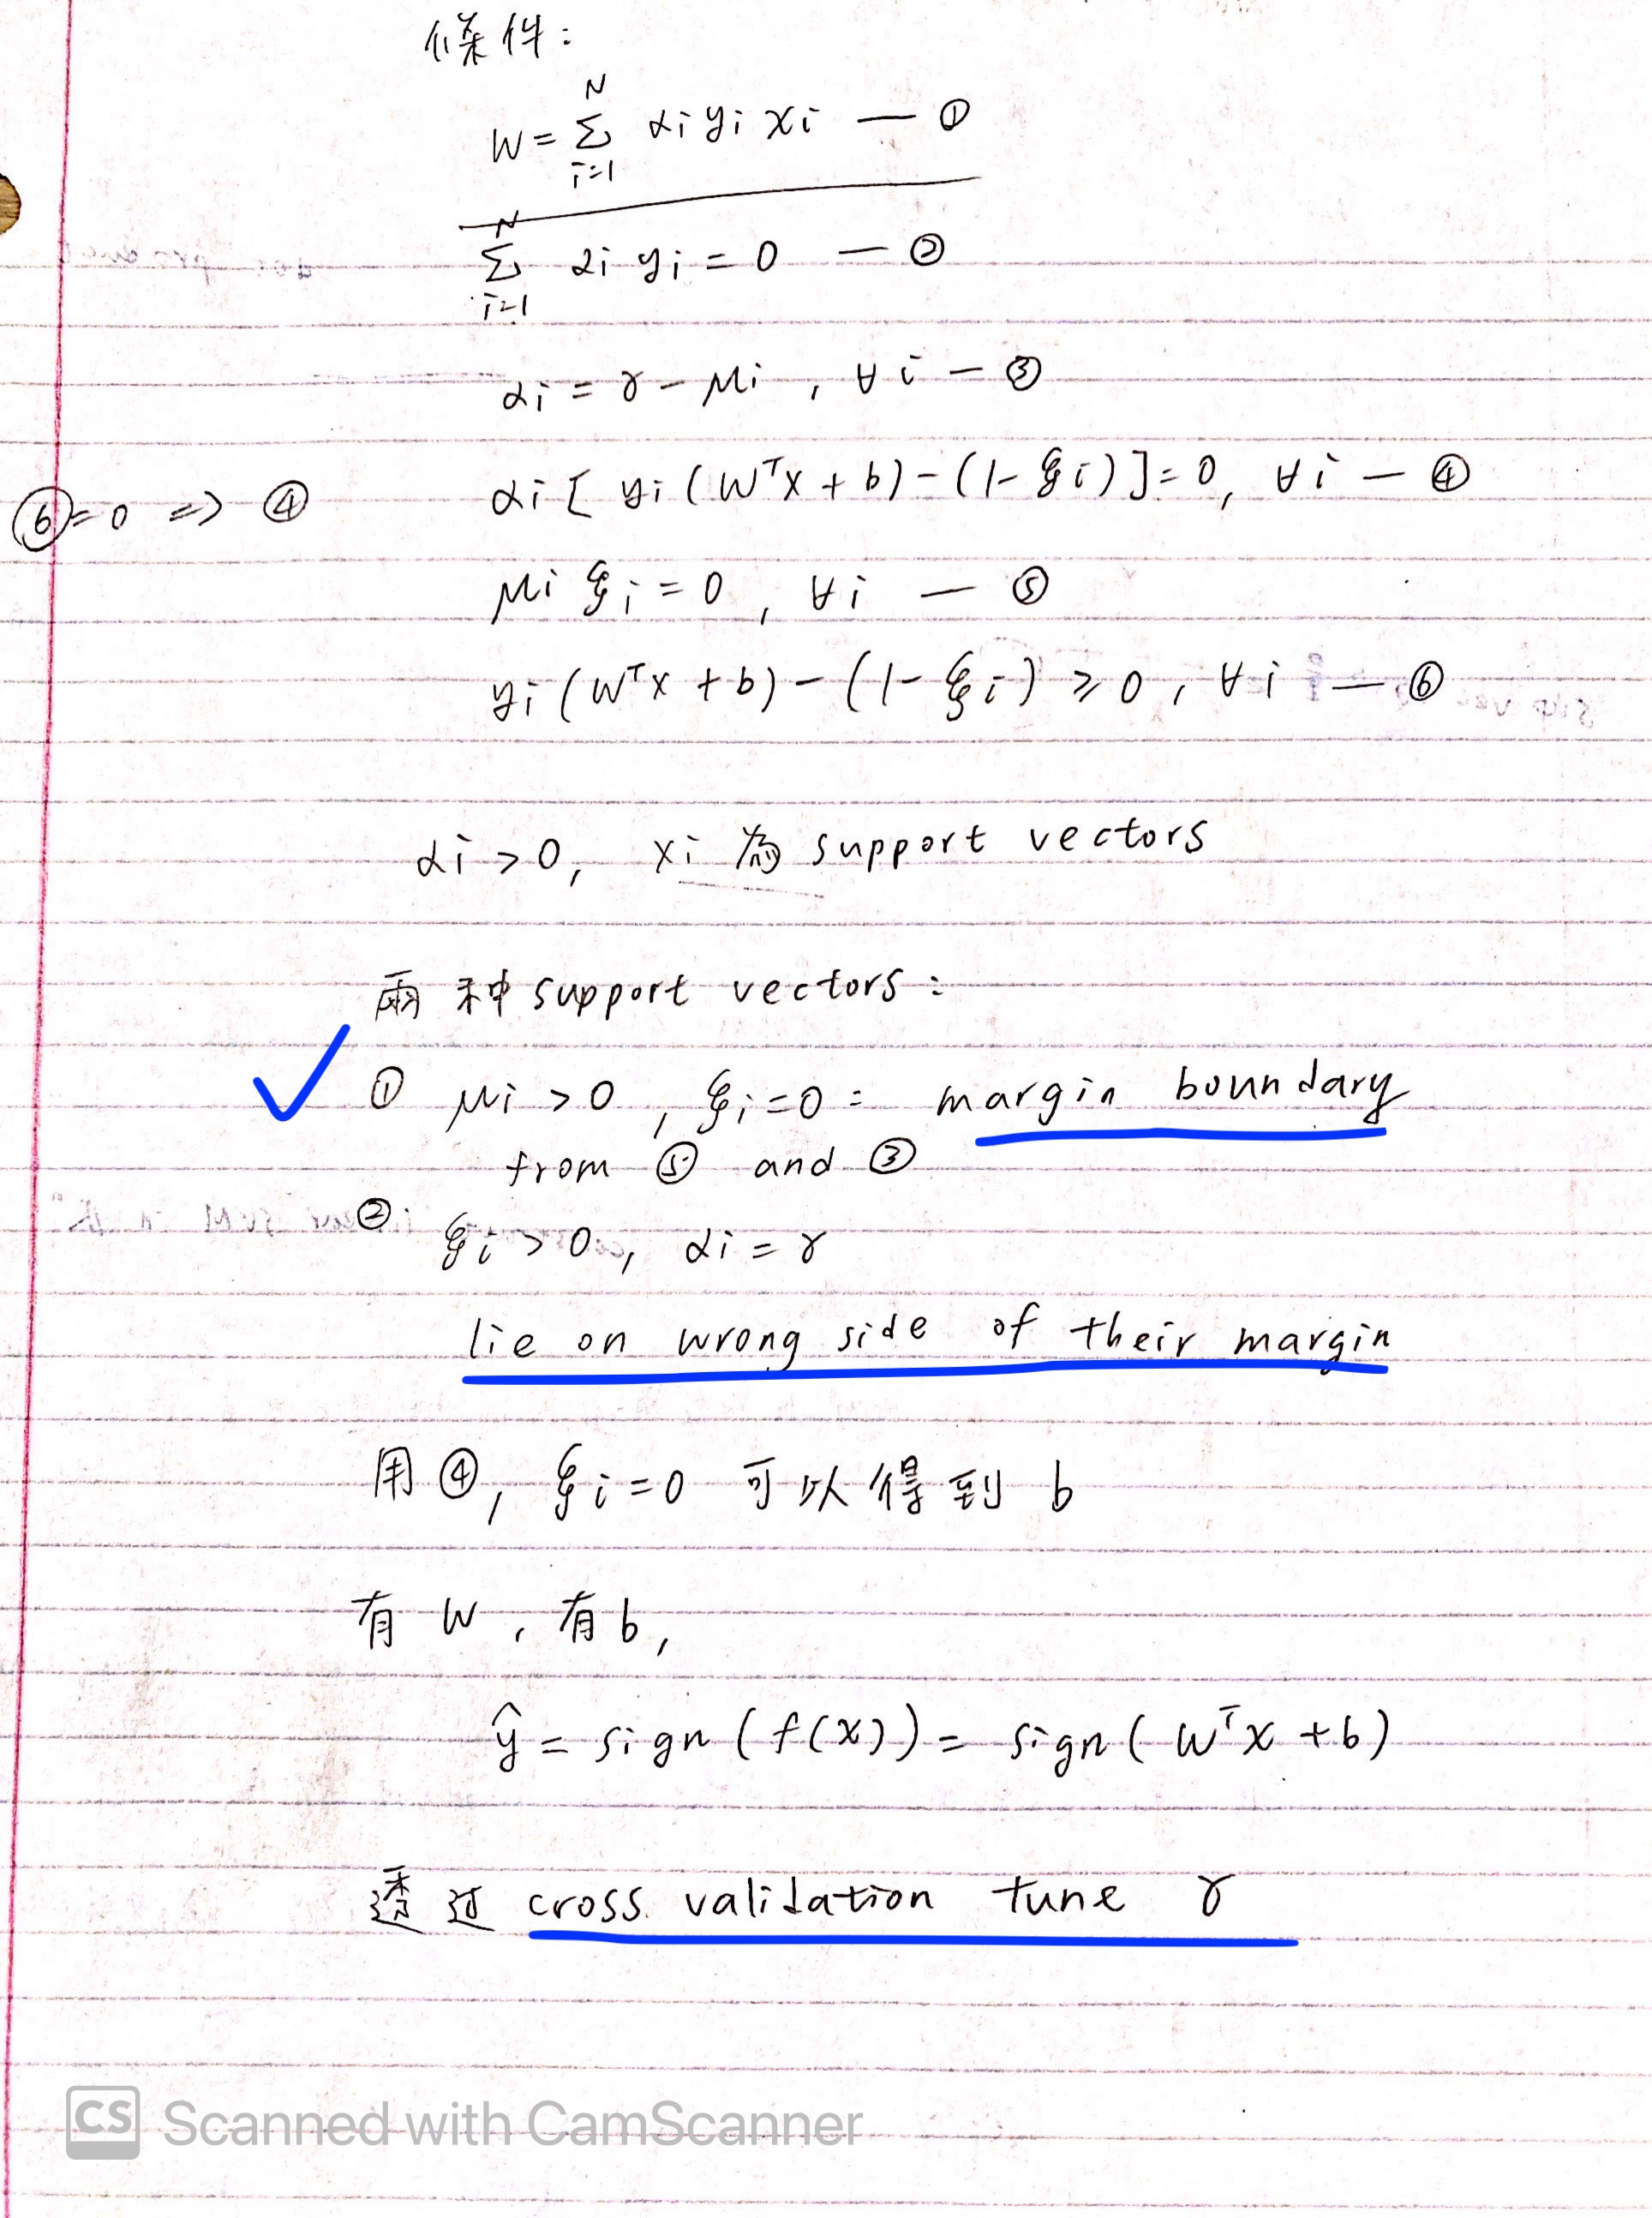 條件:
W = Σ_{i=1}^{N} αi yi xi — ①
Σ_{i=1}^{N} αi yi = 0 — ②
αi = γ - μi , ∀i — ③
⑥=0 => ④ αi [ yi (WᵀX + b) - (1 - ξi) ] = 0, ∀i — ④
μi ξi = 0 , ∀i — ⑤
yi (WᵀX + b) - (1 - ξi) ≥ 0 , ∀i — ⑥
αi > 0, xi 為 support vectors
兩种 support vectors :
✓ ① μi > 0 , ξi = 0 : margin boundary
from ⑤ and ③
② ξi > 0, αi = γ
lie on wrong side of their margin
用 ④, ξi = 0 可以得到 b
有 W , 有 b,
ŷ = sign ( f(x) ) = sign ( WᵀX + b )
透过 cross validation tune γ
CS Scanned with CamScanner